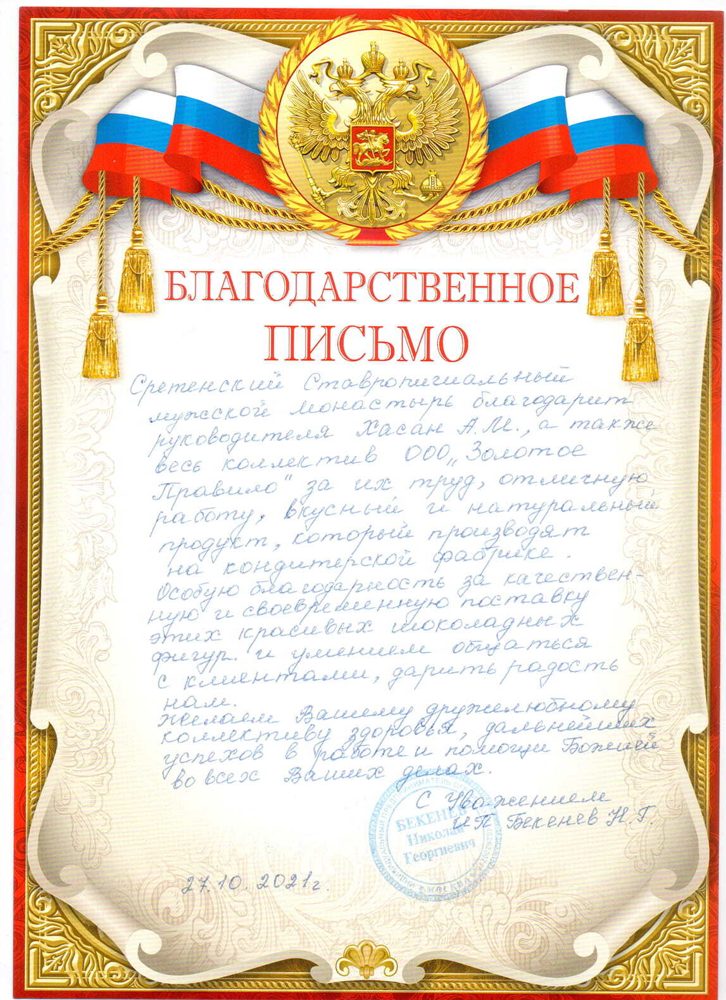 БЛАГОДАРСТВЕННОЕ
ПИСЬМО
Сретенский Ставропигиальный
мужской монастырь благодарит
руководителя Хасан А.М., а также
весь коллектив ООО „Золотое
Правило" за их труд, отличную
работу, вкусный и натуральный
продукт, который производят
на кондитерской фабрике.
Особую благодарность за качествен-
ную и своевременную поставку
этих красивых шоколадных
фигур. и умением общаться
с клиентами, дарить радость
нам.
Желаем Вашему дружелюбному
коллективу здоровья, дальнейших
успехов в работе и помощи Божией
во всех Ваших делах.
С Уважением
ИП Бекенев Н.Г.
БЕКЕНЕВ
Николай
Георгиевич
27.10.2021г.